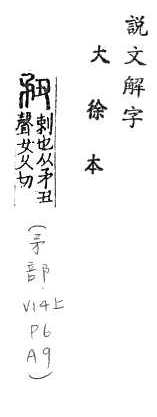 說文解字
大徐本
刺也从矛丑
聲女久切
(茅部.
V14上
P6
A9)